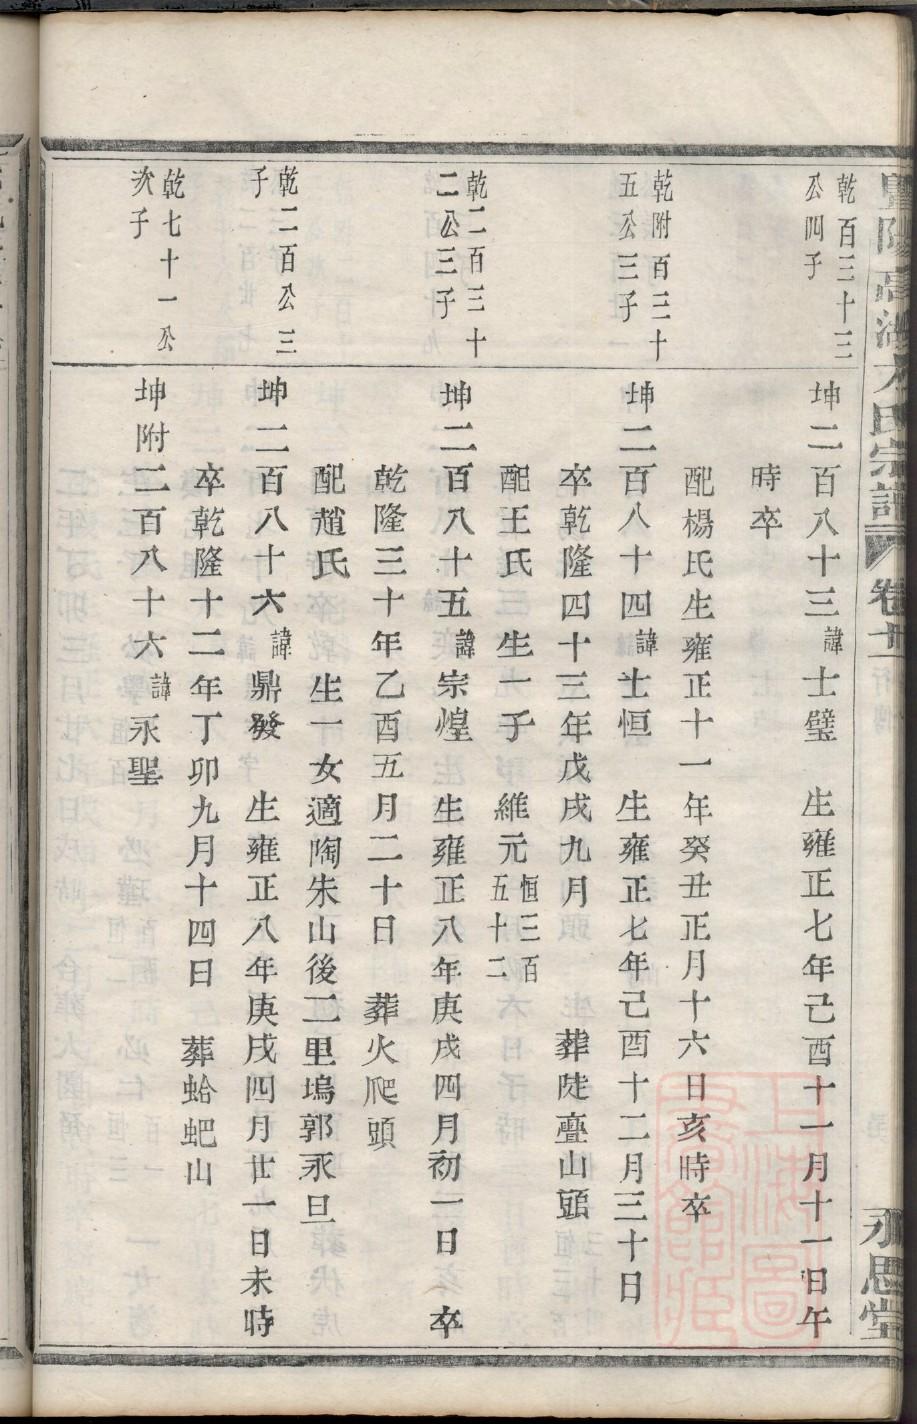 方氏宗譜 卷廿
永思堂
乾百三十三
公四子
坤二百八十三諱士璧 生雍正七年己酉十一月十一日午
時卒
配楊氏生雍正十一年癸丑正月十六日亥時卒
乾附百三十
五公三子
坤二百八十四諱士恒 生雍正七年己酉十二月三十日
卒乾隆四十三年戊戌九月 葬陡疊山頭
配王氏 生一子 維元恒三百五十二
乾二百三十
二公三子
坤二百八十五諱宗煌 生雍正八年庚戌四月初一日 卒
乾隆三十年乙酉五月二十日 葬火爬頭
配趙氏 生一女適陶朱山後二里塢郭永旦
乾二百公三
子
坤二百八十六諱鼎發 生雍正八年庚戌四月廿一日未時
卒乾隆十二年丁卯九月十四日 葬蛤蚆山
乾七十一公
次子
坤附二百八十六諱永聖